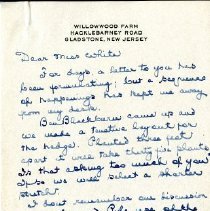 WILLOWWOOD FARM
HACKLEBARNEY ROAD
GLADSTONE, NEW JERSEY
Dear Miss White
For days, a letter to you has
been formulating but a sequence
of happenings has kept us away
from my desk.
Ben Blackburn came up and
we made a tentative layout for
the hedge. Planted three feet
apart it will take thirty six plants.
Is that asking too much of you?
If so we will select a shorter
stretch!
I don't remember our discussion